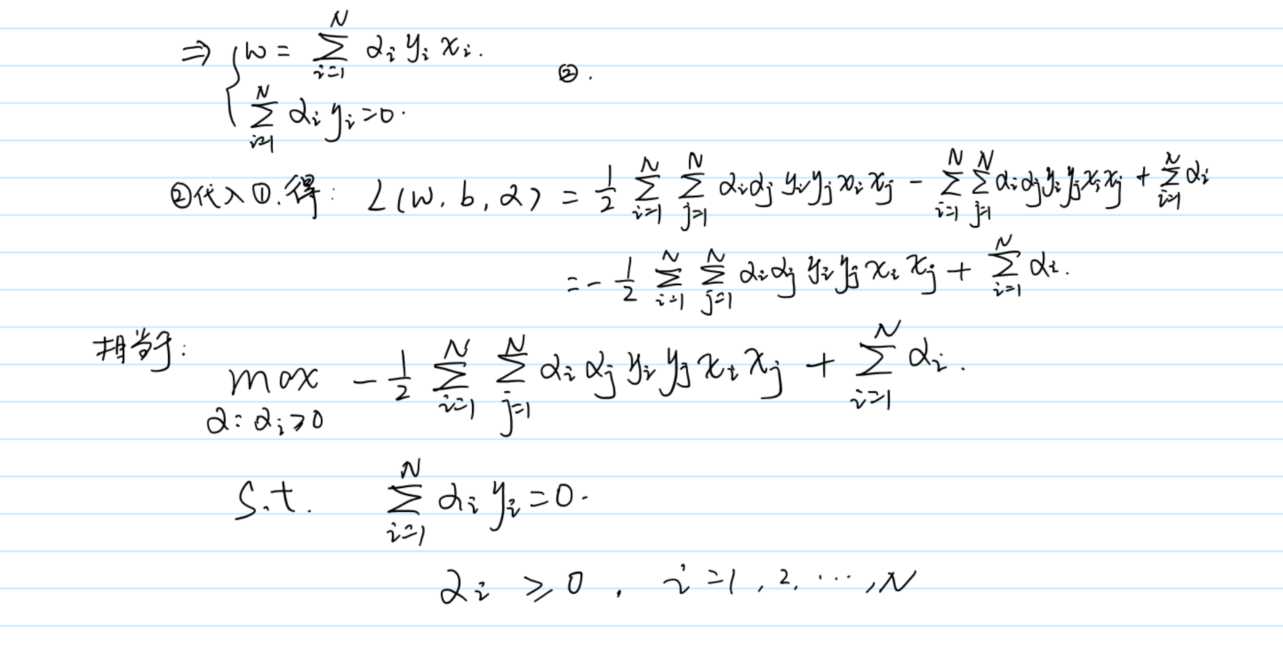 ⇒ { w = ∑_{i=1}^{N} α_i y_i x_i. ②.
∑_{i=1}^{N} α_i y_i = 0.
②代入①,得: L(w, b, α) = 1/2 ∑_{i=1}^{N} ∑_{j=1}^{N} α_i α_j y_i y_j x_i x_j − ∑_{i=1}^{N} ∑_{j=1}^{N} α_i α_j y_i y_j x_i x_j + ∑_{i=1}^{N} α_i
= − 1/2 ∑_{i=1}^{N} ∑_{j=1}^{N} α_i α_j y_i y_j x_i x_j + ∑_{i=1}^{N} α_i.
相当于:
max_{α: α_i ≥ 0} − 1/2 ∑_{i=1}^{N} ∑_{j=1}^{N} α_i α_j y_i y_j x_i x_j + ∑_{i=1}^{N} α_i.
s.t. ∑_{i=1}^{N} α_i y_i = 0.
α_i ≥ 0, i = 1, 2, ⋯, N